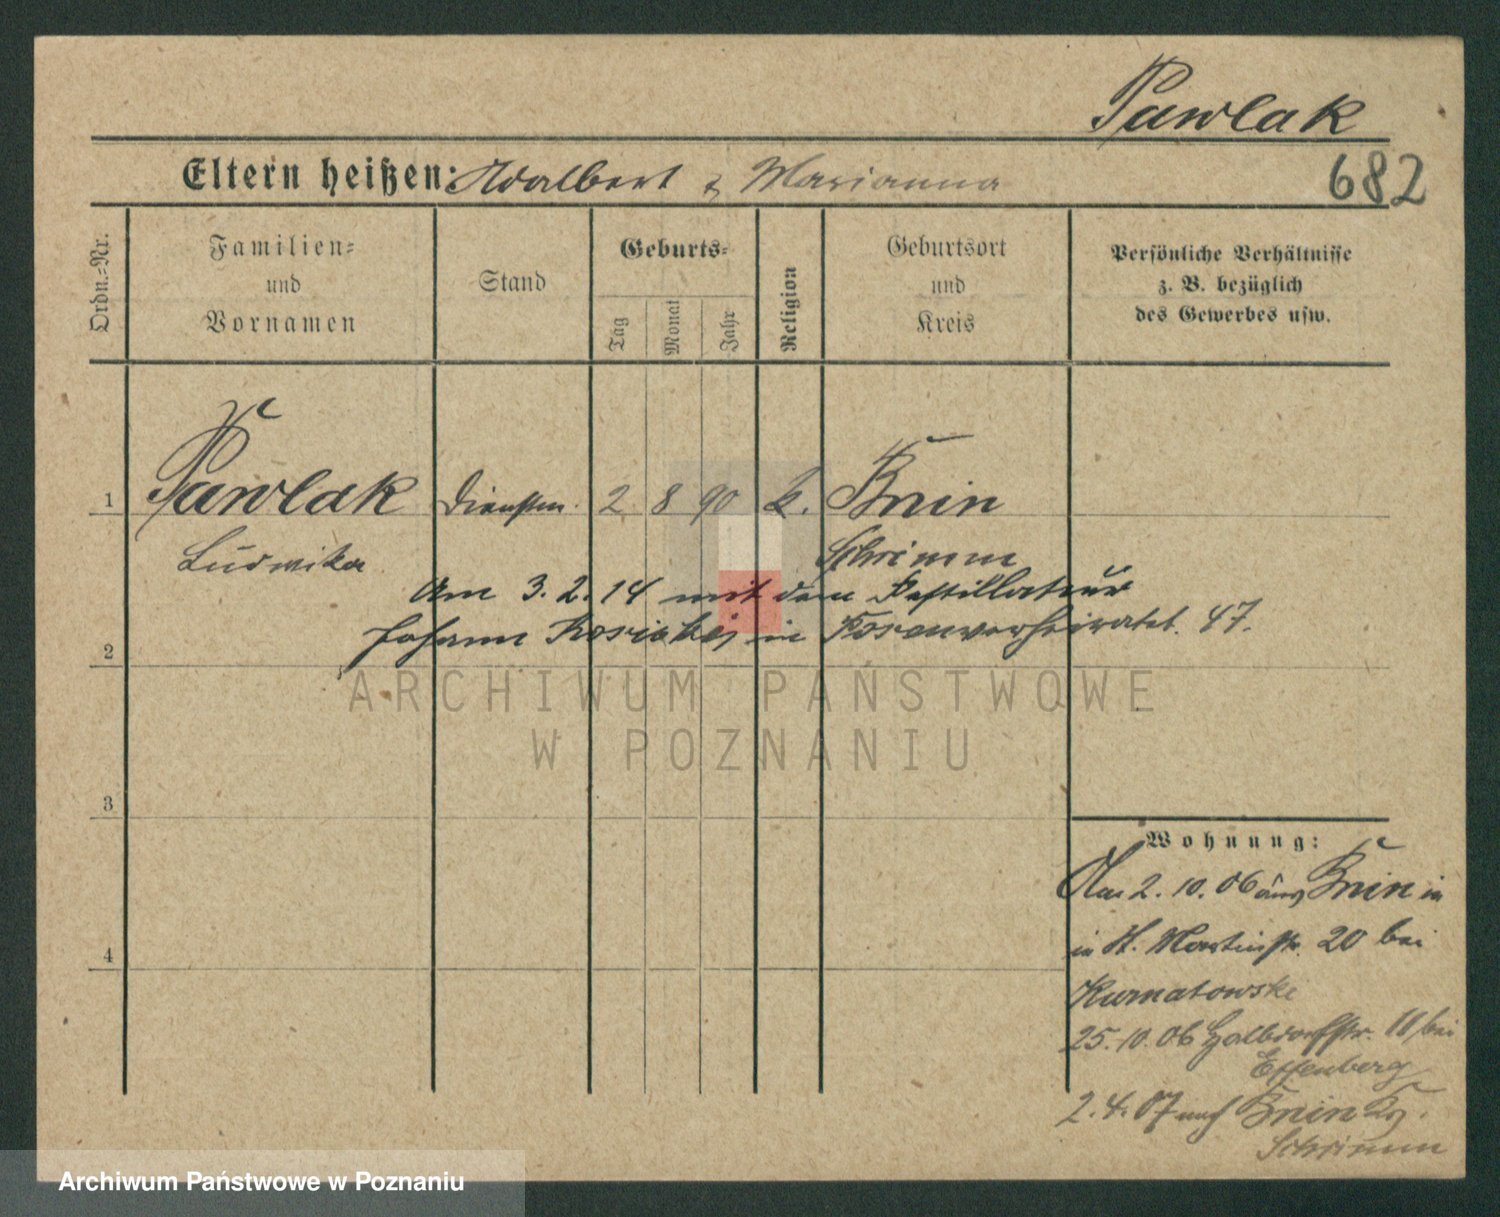 Pawlak
Eltern heißen: Adalbert & Marianna
682
Ordn.-Nr.
Familien-
und
Vornamen
Stand
Geburts-
Tag
Monat
Jahr
Religion
Geburtsort
und
Kreis
Persönliche Verhältnisse
z. B. bezüglich
des Gewerbes usw.
1 Pawlak Dienstm. 2 8 90 k. Bnin
Ludwika Schrimm
Am 3. 2. 14 mit dem Destillateur
Johann in Posen verheiratet. 47.
2
ARCHIWUM PAŃSTWOWE
W POZNANIU
3
Wohnung:
Am 2. 10. 06 aus Bnin in
in St. Martinstr. 20 bei
4
Kurnatowski
25. 10. 06 Halbdorfstr. 11 bei
Effenberg
2. 4. 07 nach Bnin Krs.
Schrimm
Archiwum Państwowe w Poznaniu